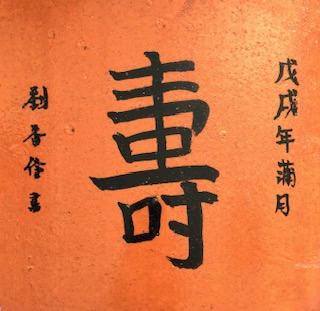 戊戌年蒲月
壽
劉香傖書